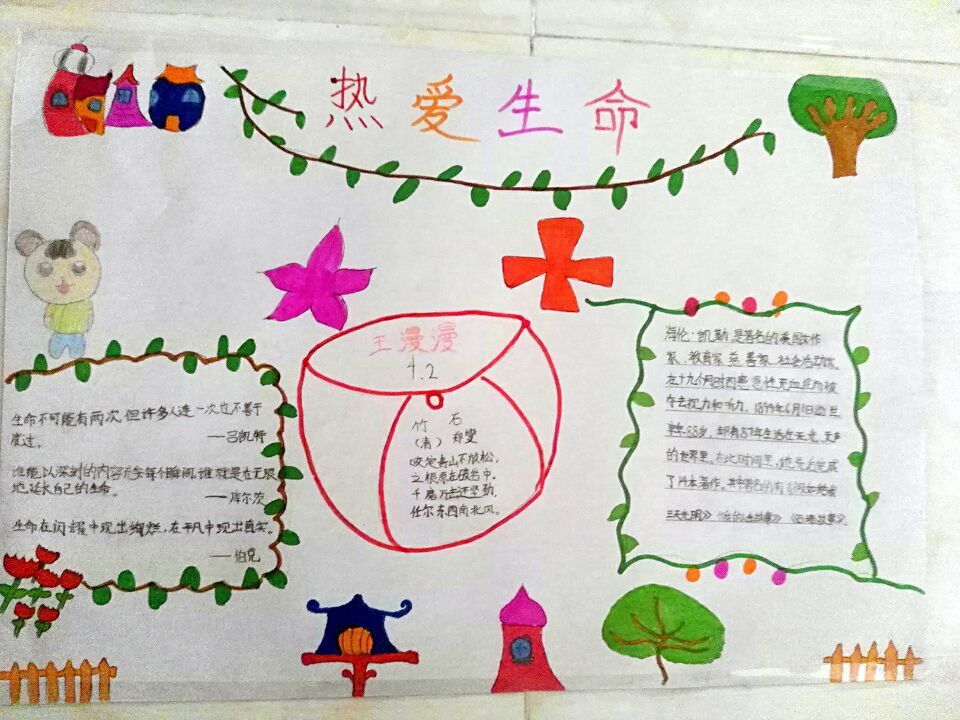 热爱生命
生命不可能有两次,但许多人连一次也不善于
度过。
——吕凯特
谁能以深刻的内容充实每个瞬间,谁就是在无限
地延长自己的生命。
——库尔茨
生命在闪耀中现出绚烂,在平凡中现出真实。
——伯克
王漫漫
4.2
竹 石
(清) 郑燮
咬定青山不放松,
立根原在破岩中。
千磨万击还坚劲,
任尔东西南北风。
海伦·凯勒,是著名的美国女作
家、教育家、慈善家、社会活动家。
在十九个月时因患急性充血症而被
夺去视力和听力。1899年6月
享年88岁,却有87年生活在无光、无声
的世界里。在此时间里,她先后完成
了14本著作。其中著名的有《假如给我
三天光明》《我的生活故事》《石墙故事》。